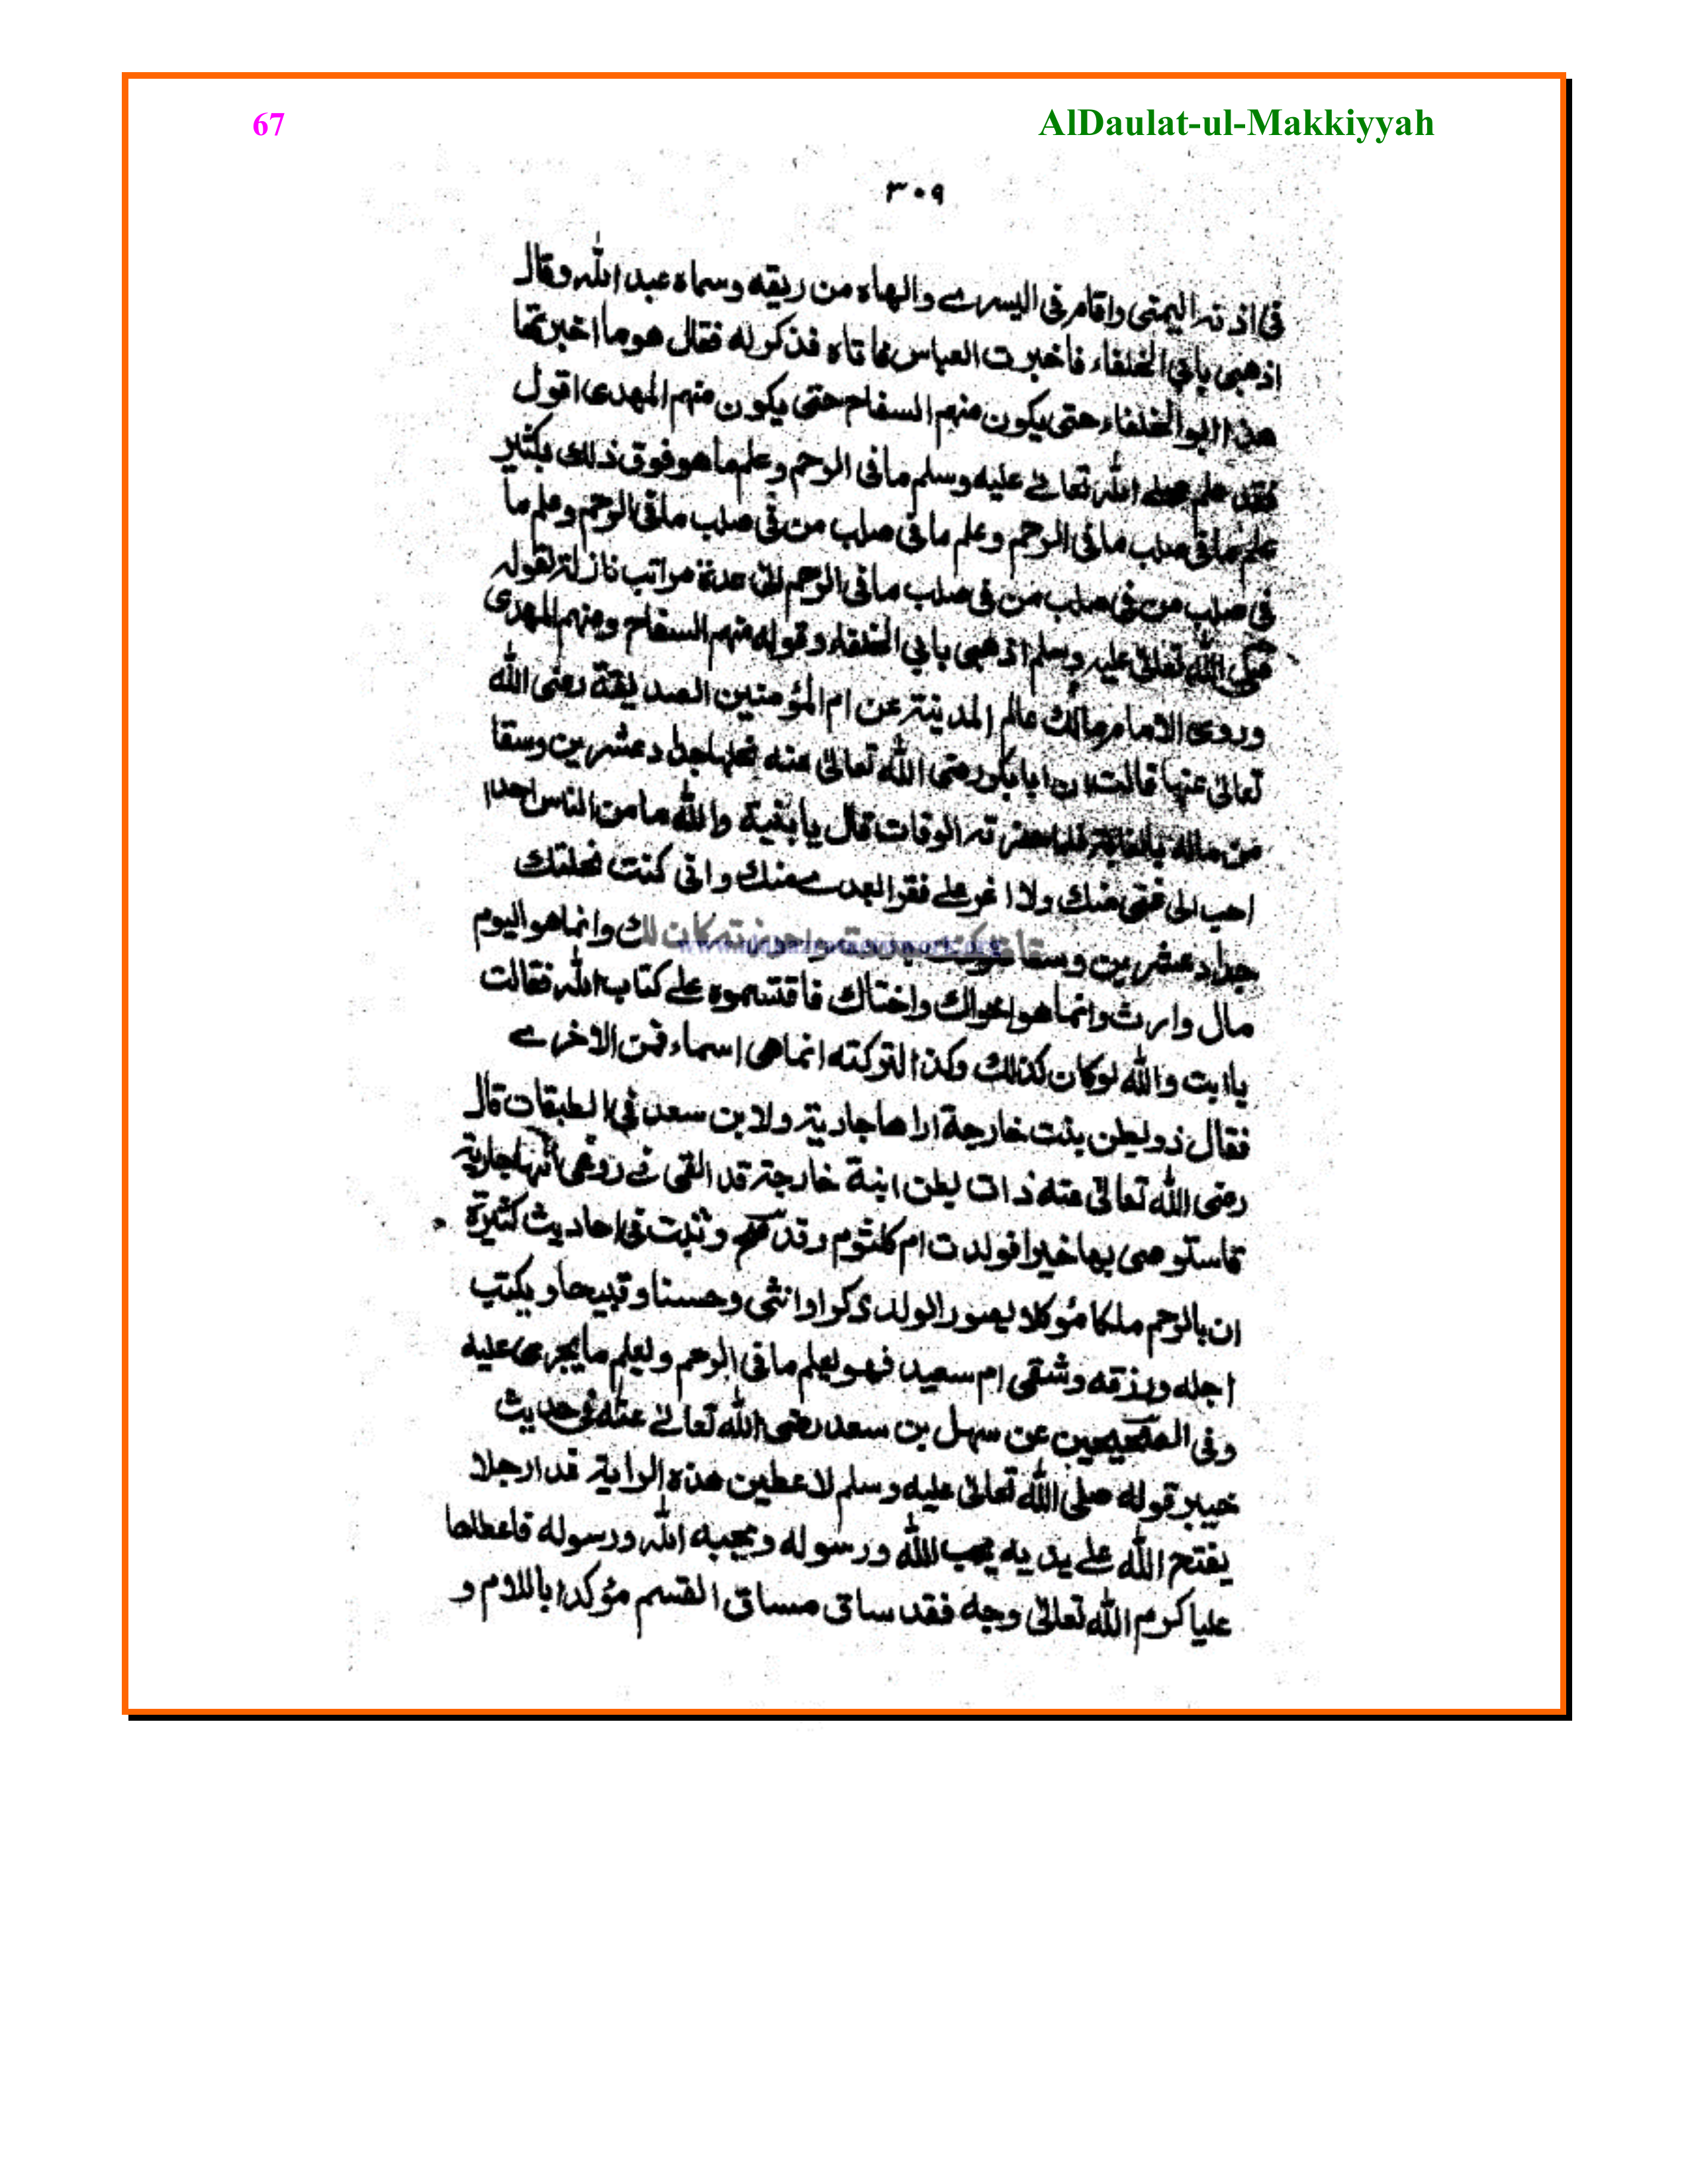 67
AlDaulat-ul-Makkiyyah
٣٠٩
فى اذنه اليمنى واقام فى اليسرے والهاه من ريقه وسماه عبد الله وقال
اذهبى بابى الخلفاء فاخبرت العباس فاتاه فذكر له فقال هو ما اخبرتها
هذا ابو الخلفاء حتى يكون منهم السفاح حتى يكون منهم المهدى اقول
فقد علم صلے الله تعالےٰ عليه وسلم ما فى الرحم وعلم ما هو فوق ذلك بكثير
علم ما فى صلب ما فى الرحم وعلم ما فى صلب من فى صلب ما فى الرحم وعلم ما
فى صلب من فى صلب من فى صلب ما فى الرحم الى عدة مراتب نازلة لقوله
صلى الله تعالىٰ عليه وسلم اذهبى بابى الخلفاء وقوله منهم السفاح ومنهم المهدى
وروى الامام مالك عالم المدينة عن ام المؤمنين الصديقة رضى الله
تعالىٰ عنها قالت ان ابا بكر رضى الله تعالىٰ عنه نحلها جداد عشرين وسقا
من ماله بالغابة فلما حضرته الوفات قال يا بنية والله ما من الناس احد
احب الى غنى منك ولا اعز علے فقرا بعدے منك وانى كنت نحلتك
جداد عشرين وسقا كان لك وانما هو اليوم
مال وارث وانما هو اخواك واختاك فاقتسموه علے كتاب الله فقالت
يا ابت والله لو كان كذلك وكذا لتركته انما هى اسماء فمن الاخرے
فقال ذو بطن بنت خارجة اراها جارية ولابن سعد فى الطبقات قال
رضى الله تعالىٰ عنه ذات بطن ابنة خارجة قد القى فے روعى انها جارية
فاستوصى بها خيرا فولدت ام كلثوم وقد صح وثبت فى احاديث كثيرة
ان بالرحم ملكا مؤكلا يصور الولد ذكرا وانثى وحسنا وقبيحا ويكتب
اجله ورزقه وشقى ام سعيد فهو يعلم ما فى الرحم ويعلم ما يجرى عليه
وفى الصحيحين عن سهل بن سعد رضى الله تعالےٰ عنه فى حديث
خيبر قوله صلى الله تعالىٰ عليه وسلم لاعطين هذه الراية غدا رجلا
يفتح الله علے يديه يحب الله ورسوله ويحبه الله ورسوله فاعطاها
عليا كرم الله تعالىٰ وجهه فقد ساق مساق القسم مؤكدا باللام و